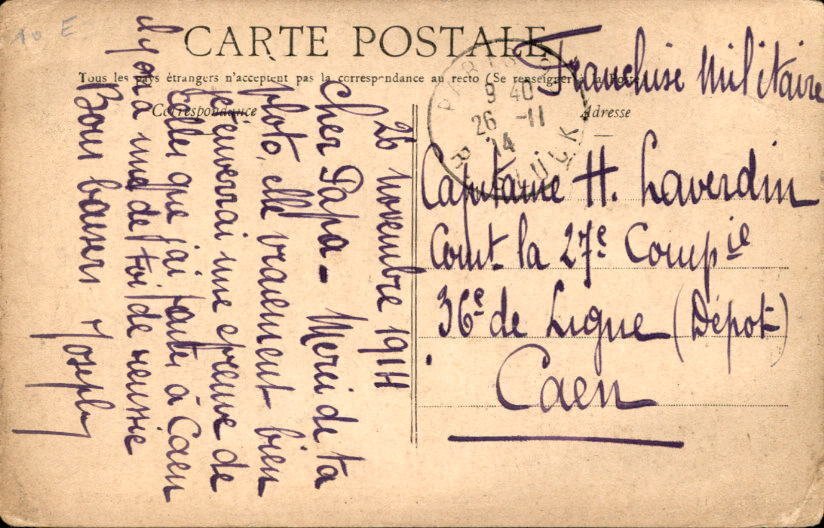 10 E
CARTE POSTALE
Tous les pays étrangers n'acceptent pas la correspondance au recto (Se renseigner à la Poste)
Correspondance
Adresse
PARIS
9 40
26 - 11
14
R. GLUCK
Franchise Militaire
Capitaine H. Laverdin
Comt la 27e Compie
36e de Ligne (Dépot)
Caen
26 novembre 1914
Cher Papa - Merci de ta
photo, elle vraiement bien
t'enverrai une épreuve de
celles que j'ai faites à Caen
il y en a une de toi de reussie
Bons baisers Joseph